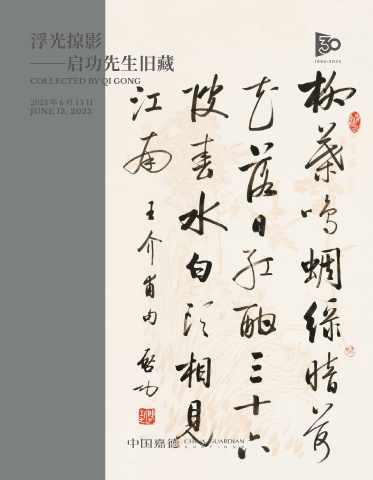 浮光掠影
——启功先生旧藏
COLLECTED BY QI GONG
2023年6月13日
JUNE 13, 2023
30
1993-2023
柳葉鳴蜩綠暗荷
花落日紅酣三十六
陂春水白頭相見
江南
王介甫句 啟功
中国嘉德 CHINA GUARDIAN
AUCTIONS